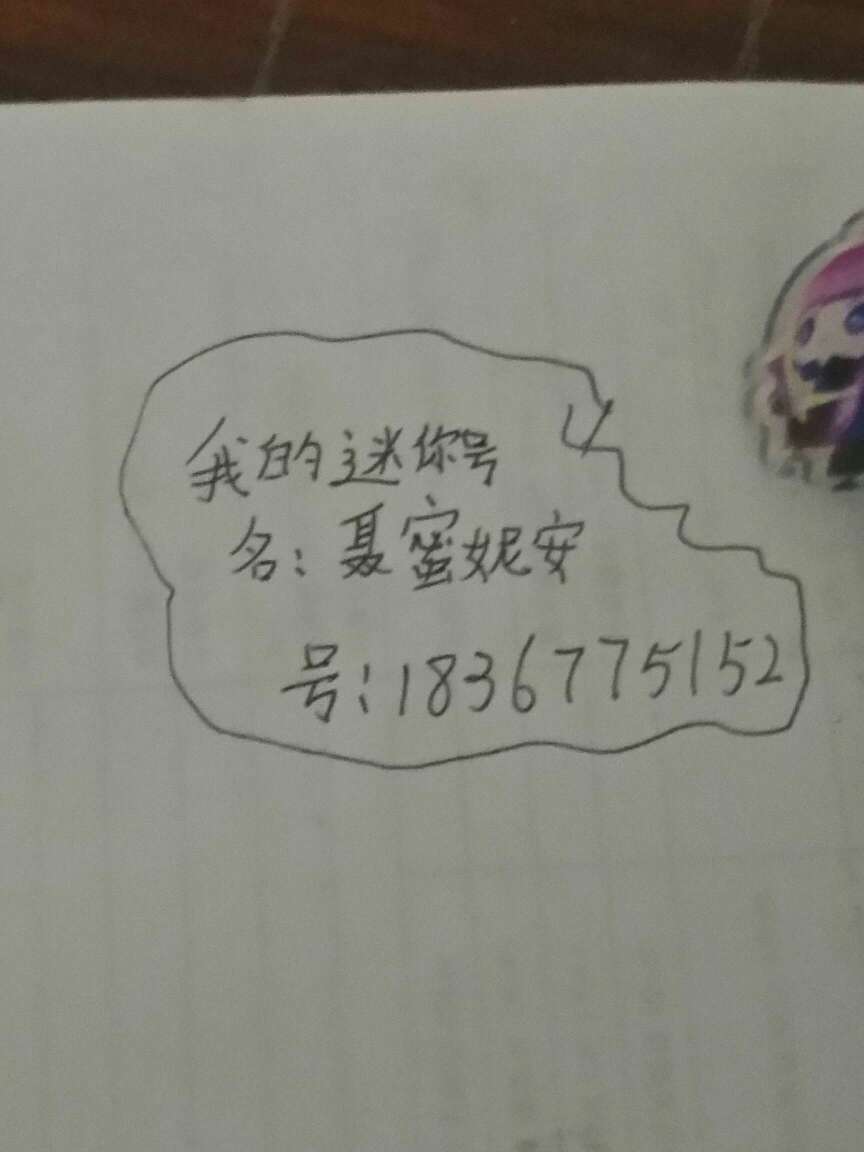 我的迷你号
名：聂蜜妮安
号：1836775152